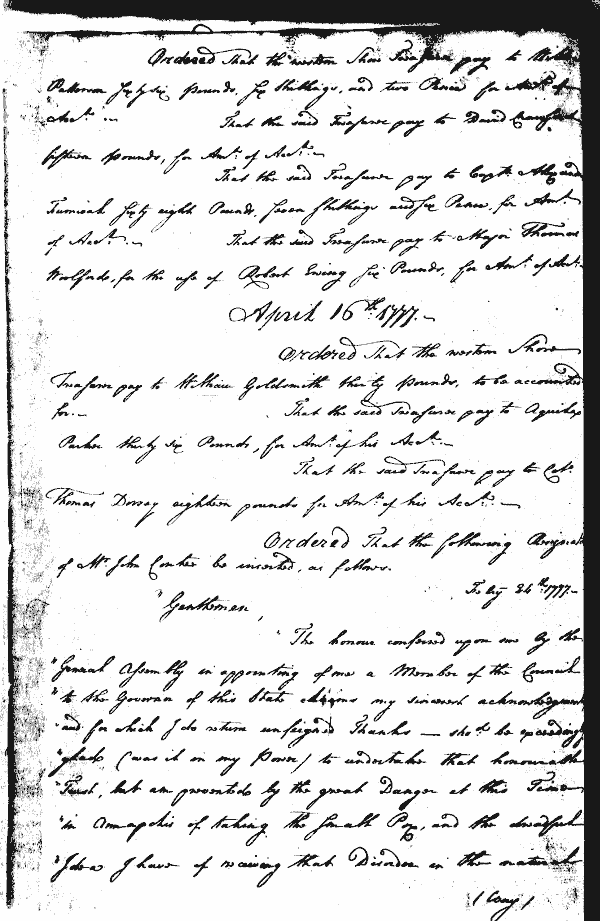 Ordered That the western Shore Treasurer pay to
Patterson sixty six pounds, six shillings, and two Pence for Amt. of
Acct. —
That the said Treasurer pay to David Crawford
fifteen pounds, for Amt. of Acct. —
That the said Treasurer pay to Capt. Alexander
Furnival sixty eight Pounds, seven shillings and six Pence, for Amt.
of Acct. —
That the said Treasurer pay to Major Thomas
Woolford, for the use of Robert Ewing six Pounds, for Amt. of Acct.
April 16th. 1777. —
Ordered That the western Shore
Treasurer pay to William Goldsmith thirty pounds, to be accounted
for. —
That the said Treasurer pay to Aquila
Parker thirty six Pounds, for Amt. of his Acct. —
That the said Treasurer pay to Col.
Thomas Dorsey eighteen pounds for Amt. of his Acct. —
Ordered That the following
of Mr. John Contee be inserted, as follows.
Feby 24th. 1777. —
"Gentlemen,
"The honour conferred upon me by the
"General Assembly in appointing of me a Member of the Council
"to the Governor of this State claims my sincerest acknowledgment
"and for which I do return unfeigned Thanks — shod. be exceedingly
"glad (was it in my Power) to undertake that honourable
"Trust, but am prevented by the great Danger at this Time
"in Annapolis of taking the Small Pox, and the dreadful
"Idea I have of receiving that Disorder in the natural
(Way)